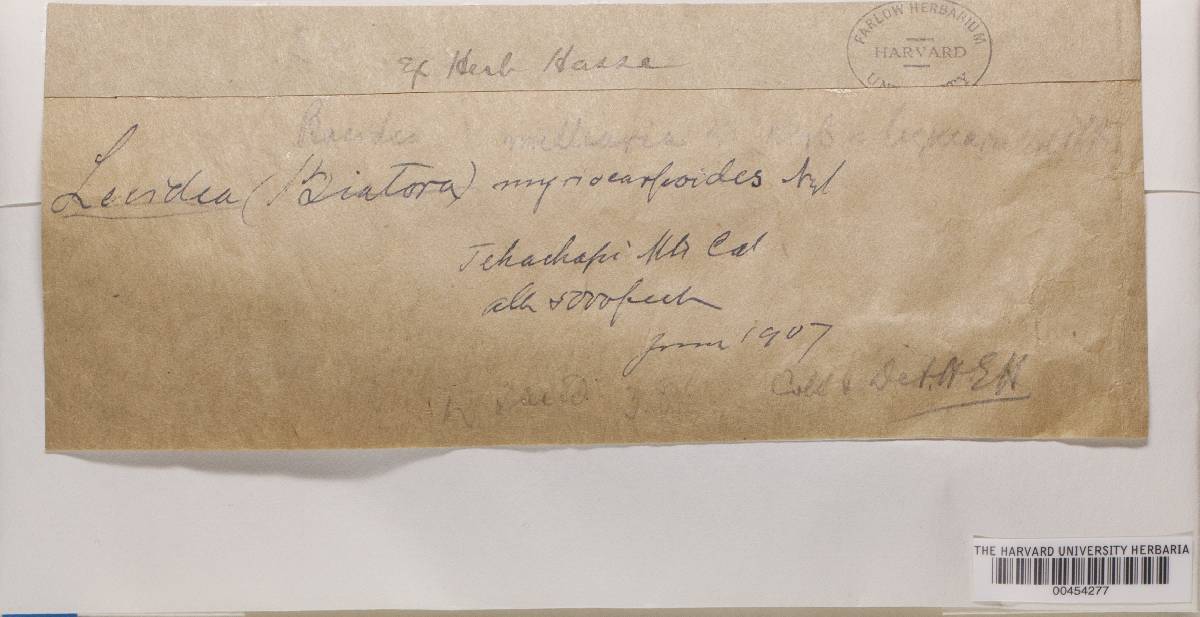 Ex Herb Hasse
FARLOW HERBARIUM
HARVARD
Lecidea (Biatora) myriocarpoides Nyl
Tehachapi Mts Cal
alt 5000 feet
June 1907
Coll & Det. H E H
THE HARVARD UNIVERSITY HERBARIA
00454277